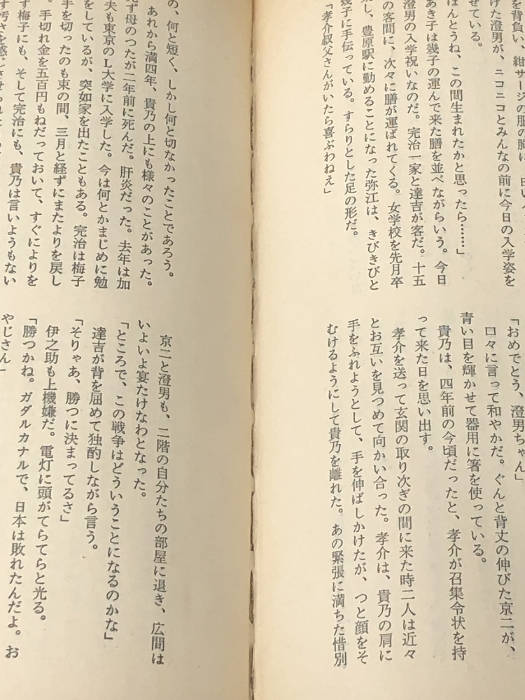 を背負い、紺サージの服の胸に、白い
けた澄男が、ニコニコとみんなの前に今日の入学姿を
せている。
ほんとうね、この間生まれたかと思ったら……」
あき子は幾子の運んで来た膳を並べながらいう。今日
澄男の入学祝いなのだ。完治一家と達吉が客だ。十五
の客間に、次々に膳が運ばれてくる。女学校を先月卒
し、豊原駅に勤めることになった弥江は、きびきびと
幾子に手伝っている。すらりとした足の形だ。
「孝介叔父さんがいたら喜ぶわねえ」
「おめでとう、澄男ちゃん」
口々に言って和やかだ。ぐんと背丈の伸びた京二が、
青い目を輝かせて器用に箸を使っている。
貴乃は、四年前の今頃だったと、孝介が召集令状を持
って来た日を思い出す。
孝介を送って玄関の取り次ぎの間に来た時二人は近々
とお互いを見つめて向かい合った。孝介は、貴乃の肩に
手をふれようとして、手を伸ばしかけたが、つと顔をそ
むけるようにして貴乃を離れた。あの緊張に満ちた惜別
の、何と短く、しかし何と切なかったことであろう。
あれから満四年、貴乃の上にも様々のことがあった。
ず母のつたが二年前に死んだ。肝炎だった。去年は加
夫も東京のL大学に入学した。今は何とかまじめに勉
をしているが、突如家を出たこともある。完治は梅子
手を切ったのも束の間、三月と経ずにまたよりを戻し
。手切れ金を五百円もねだっておいて、すぐによりを
す梅子にも、そして完治にも、貴乃は言いようもない
京二と澄男も、二階の自分たちの部屋に退き、広間は
いよいよ宴たけなわとなった。
「ところで、この戦争はどういうことになるのかな」
達吉が背を屈めて独酌しながら言う。
「そりゃあ、勝つに決まってるさ」
伊之助も上機嫌だ。電灯に頭がてらてらと光る。
「勝つかね。ガダルカナルで、日本は敗れたんだよ。お
やじさん」